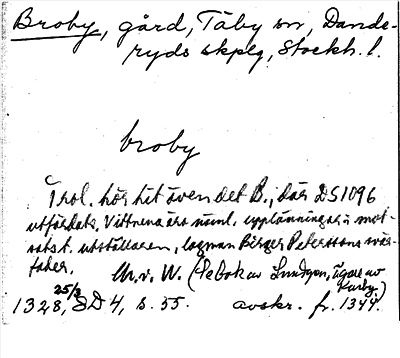 Broby, gård, Täby sn, Dande-
ryds skplg, Stockh. l.
broby
Trol. hör hit även det B., där DS 1096
utfärdats. Vittnena äro näml. upplänningar i mot-
sats t. utställaren, lagman Birger Peterssons svär-
fader.
M. v. W. (Se Bok av Lundgren, ägare av
Karby.)
25/3
1328, SD 4, s. 55. avskr. fr. 1344.